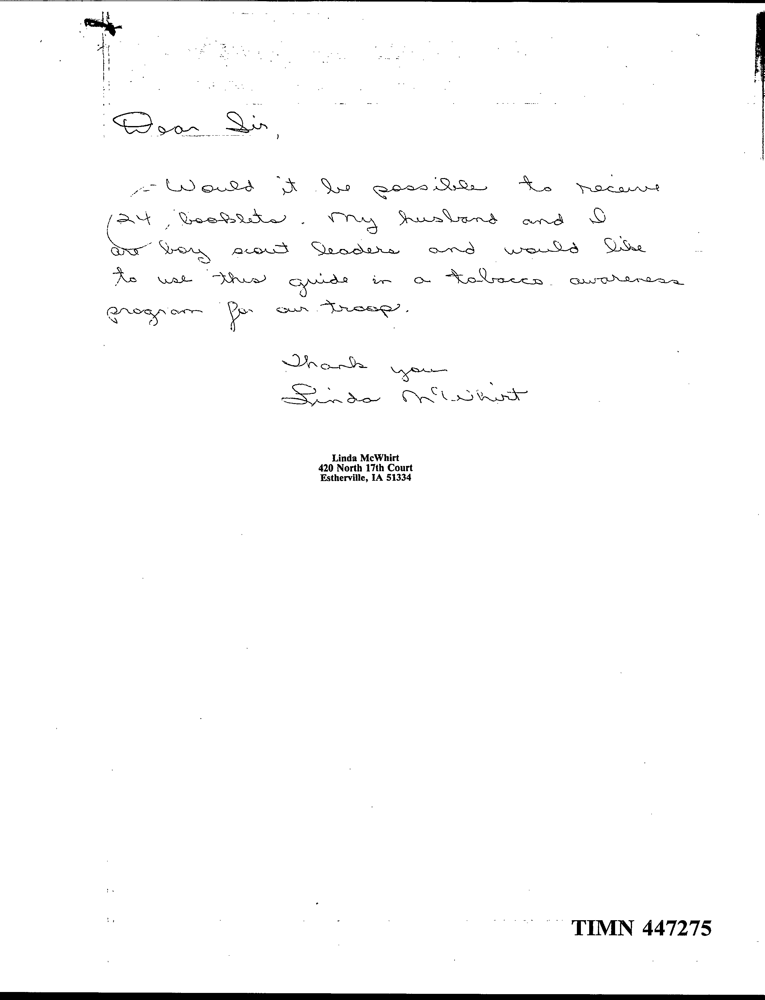 Dear Sir,
Would it be possible to receive
24 booklets. My husband and I
are boy scout leaders and would like
to use this guide in a tobacco awareness
program for our troop.
Thank you
Linda McWhirt
Linda McWhirt
420 North 17th Court
Estherville, IA 51334
TIMN 447275